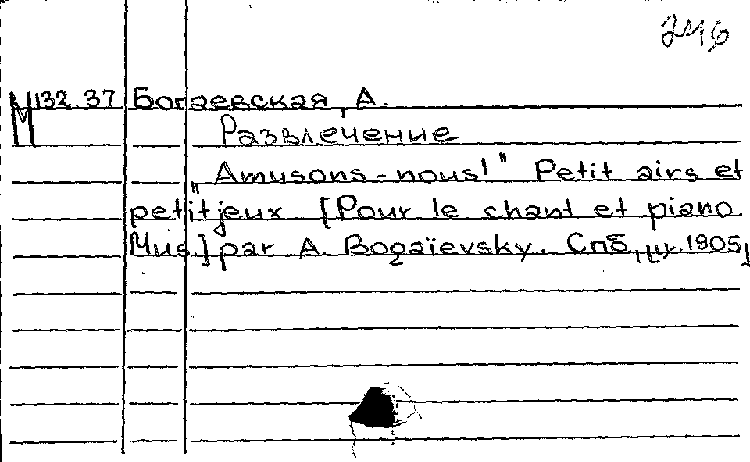 246
М132.37 Богаевская, А.
Развлечение
"Amusons-nous!" Petit airs et
petit jeux [Pour le chant et piano.
Mus] par A. Bogaïevsky. Спб, 1905,